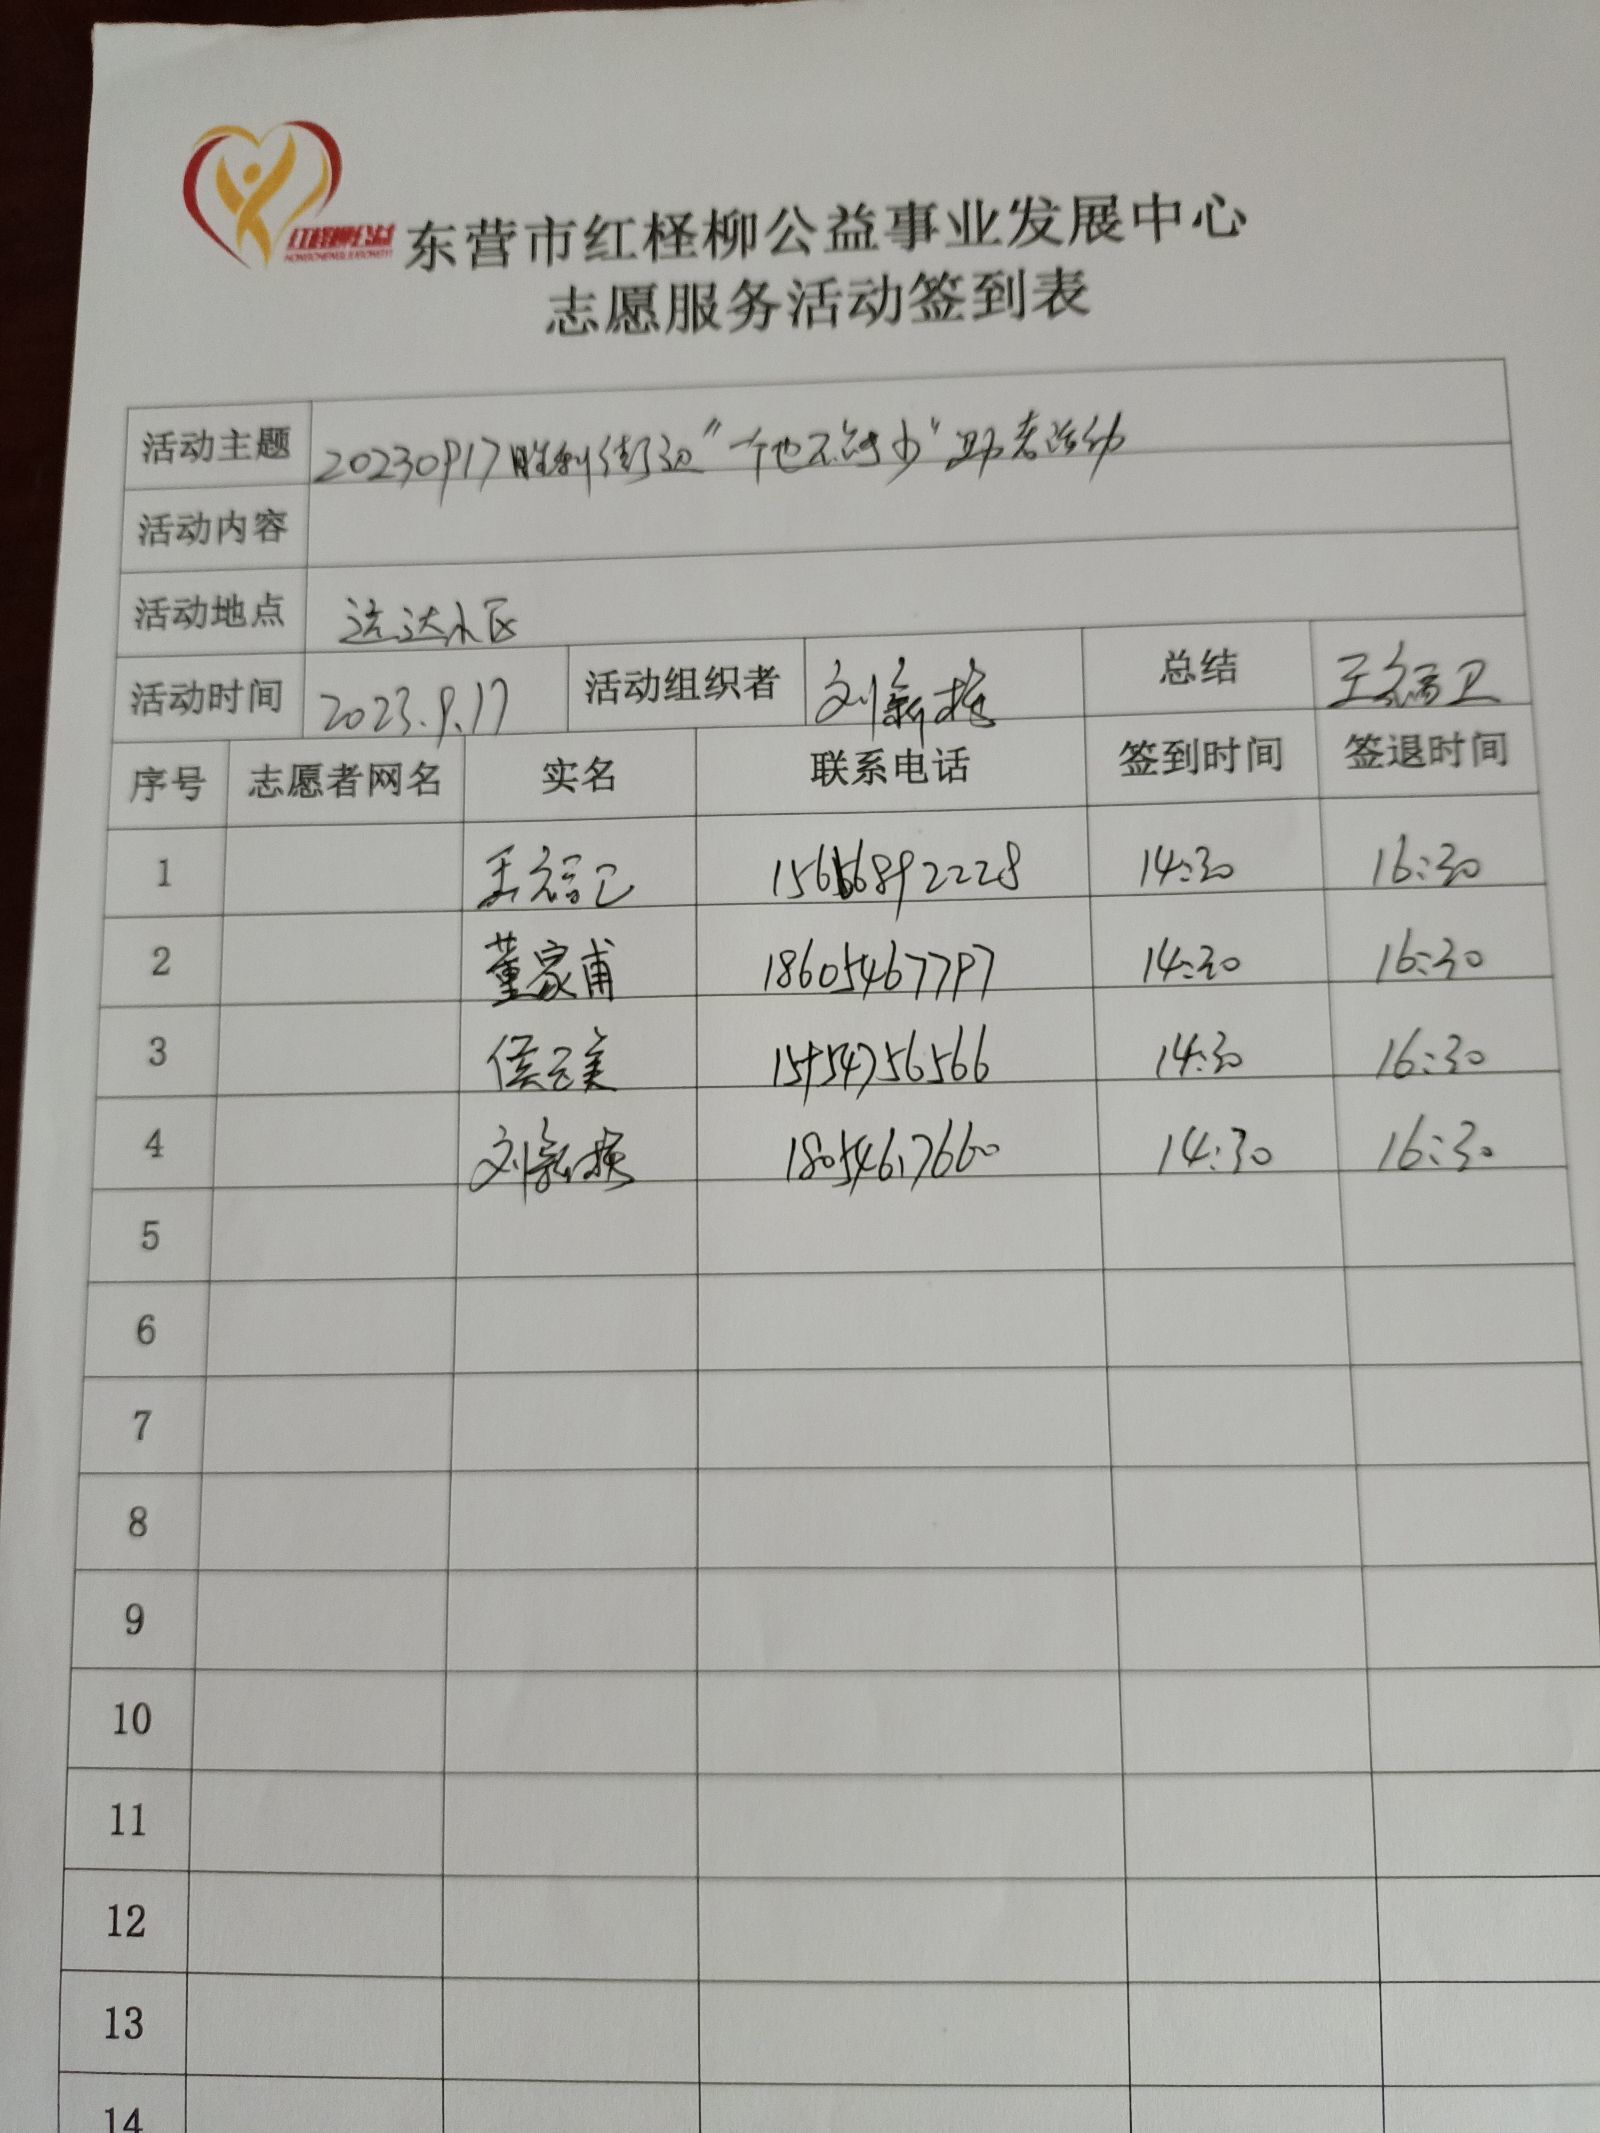 红柽柳公益
东营市红柽柳公益事业发展中心
志愿服务活动签到表
活动主题 20230917胜利街道"一个也不能少"助老活动
活动内容
活动地点 远达小区
活动时间 2023.9.17 活动组织者 刘新 总结 王 卫
序号 志愿者网名 实名 联系电话 签到时间 签退时间
1 王 卫 15666892228 14:30 16:30
2 董家甫 18605467797 14:30 16:30
3 侯 美 15954756566 14:30 16:30
4 刘新 18054617660 14:30 16:30
5
6
7
8
9
10
11
12
13
14